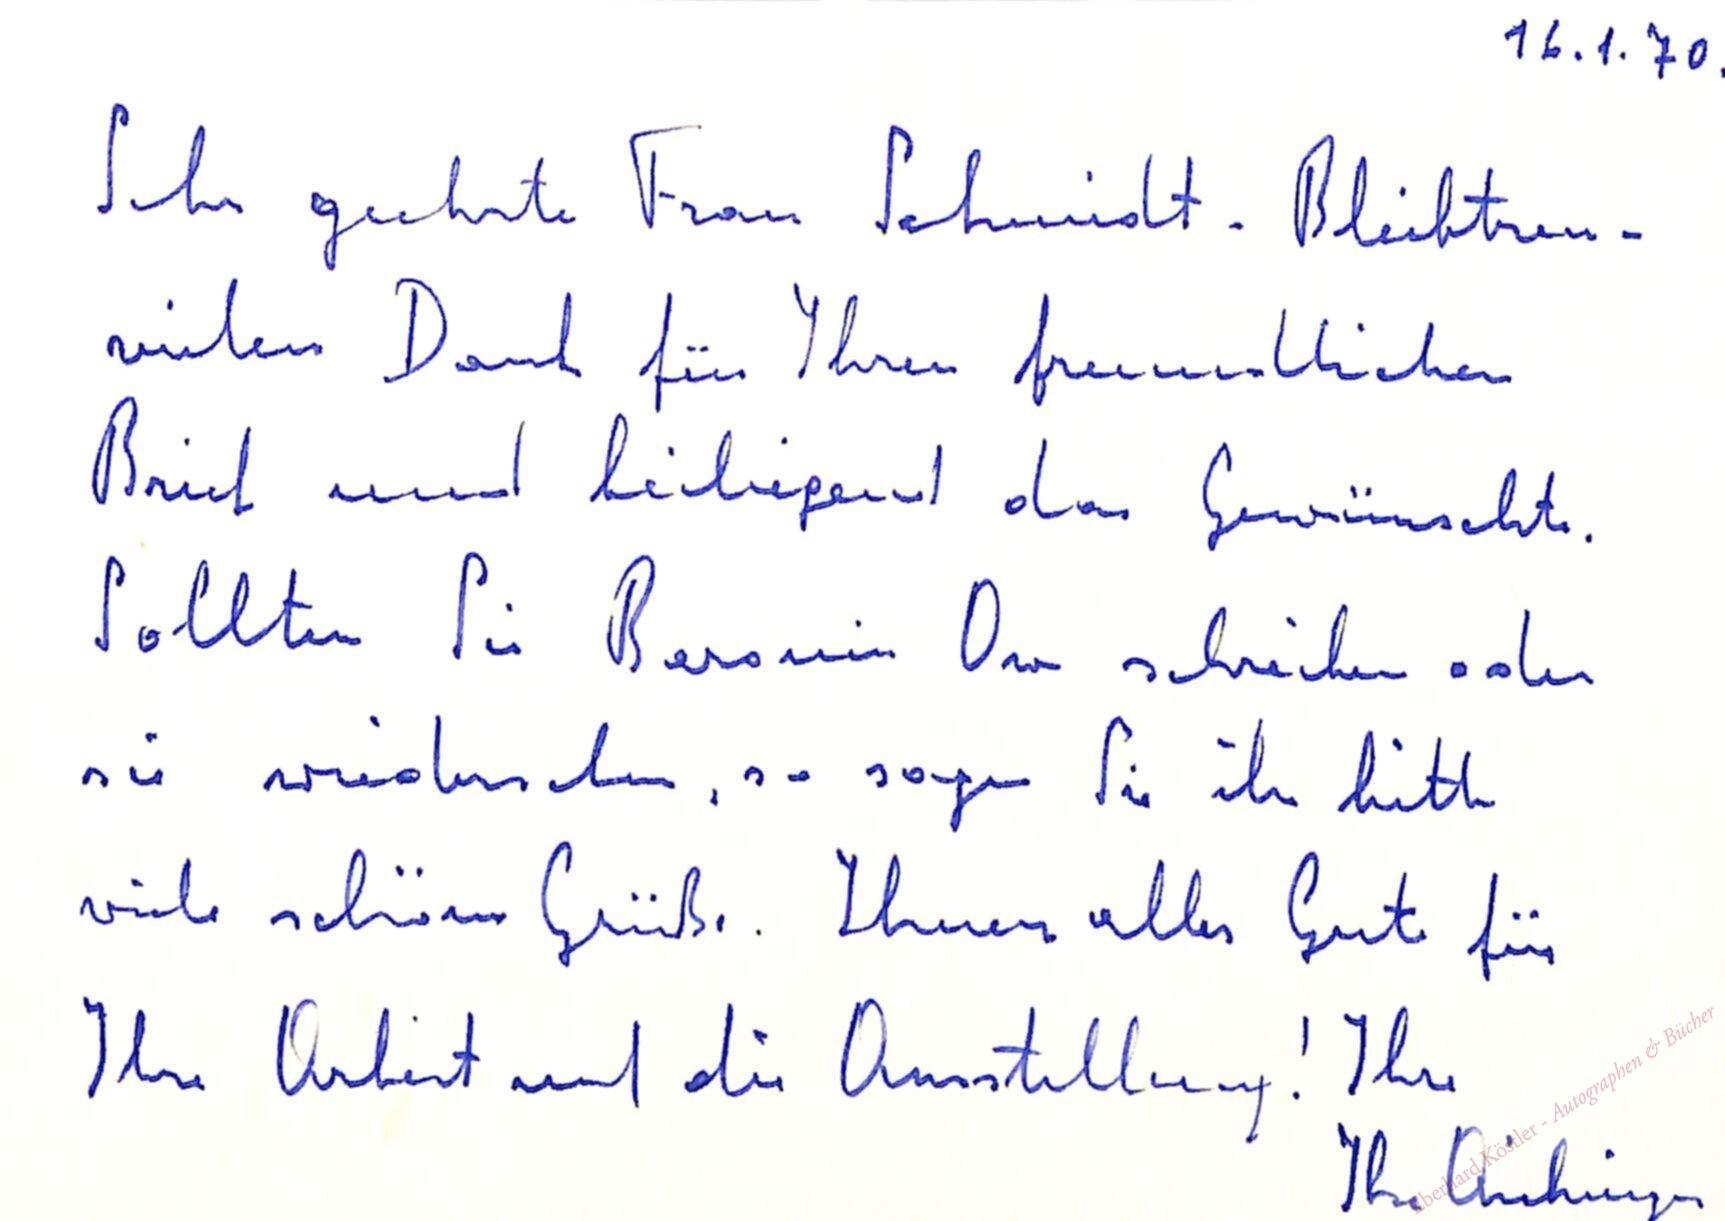 16.1.70.
Sehr geehrte Frau Schmidt-Bleibtreu -
vielen Dank für Ihren freundlichen
Brief und beiliegend das Gewünschte.
Sollten Sie Baronin Ow schreiben oder
sie wiedersehen, so sagen Sie ihr bitte
viele schöne Grüße. Ihnen alles Gute für
Ihre Arbeit und die Ausstellung! Ihre
Ilse Aichinger
Eberhard Köstler - Autographen & Bücher